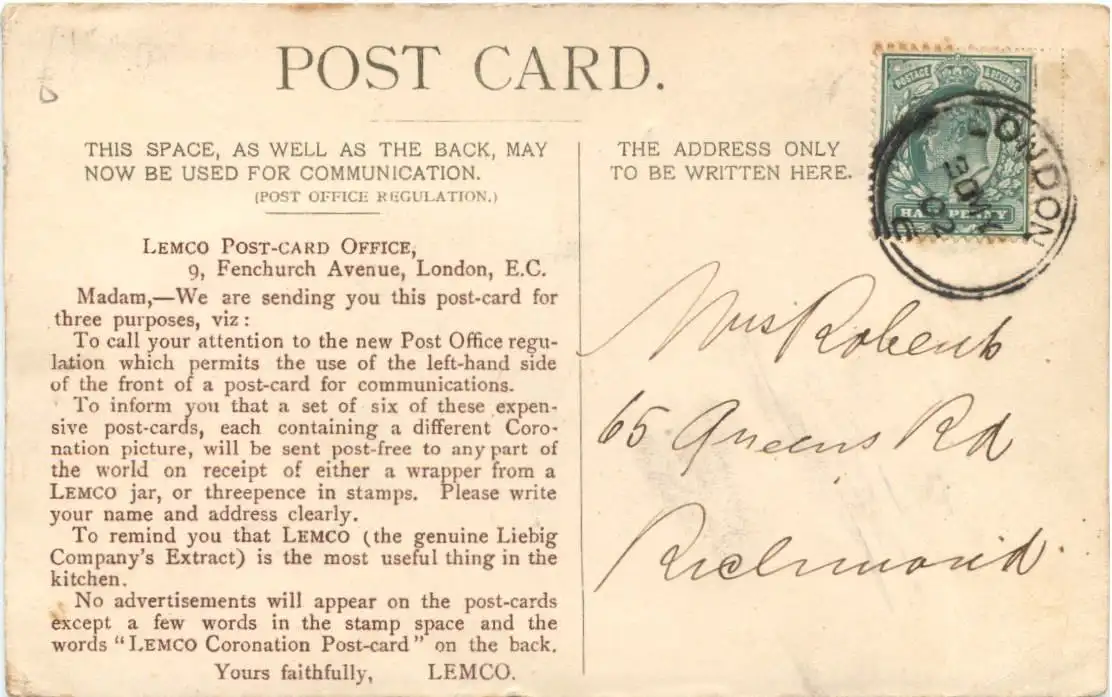 POST CARD.
THIS SPACE, AS WELL AS THE BACK, MAY
NOW BE USED FOR COMMUNICATION.
(POST OFFICE REGULATION.)
LEMCO POST-CARD OFFICE,
9, Fenchurch Avenue, London, E.C.
Madam,—We are sending you this post-card for
three purposes, viz:
To call your attention to the new Post Office regu-
lation which permits the use of the left-hand side
of the front of a post-card for communications.
To inform you that a set of six of these expen-
sive post-cards, each containing a different Coro-
nation picture, will be sent post-free to any part of
the world on receipt of either a wrapper from a
LEMCO jar, or threepence in stamps. Please write
your name and address clearly.
To remind you that LEMCO (the genuine Liebig
Company's Extract) is the most useful thing in the
kitchen.
No advertisements will appear on the post-cards
except a few words in the stamp space and the
words "LEMCO Coronation Post-card" on the back.
Yours faithfully, LEMCO.
THE ADDRESS ONLY
TO BE WRITTEN HERE.
POSTAGE & REVENUE
HALFPENNY
LONDON
02
Mrs Roberts
65 Queens Rd
Richmond